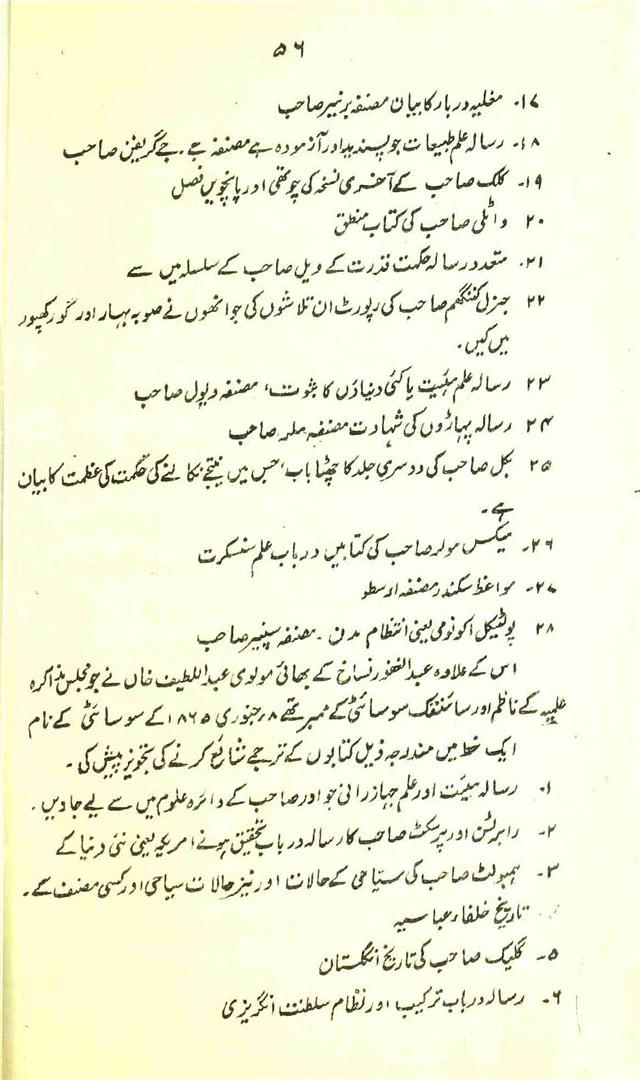 ۵۶
۱۷۔ مغلیہ دربار کا بیان مصنفہ برنیر صاحب
۱۸۔ رسالہ علم طبیعات جو پسندیدہ اور آزمودہ ہے مصنفہ جے۔ جے گریفن صاحب
۱۹۔ کلک صاحب کے آخری نسخہ کی چوتھی اور پانچویں فصل
۲۰ واٹلی صاحب کی کتاب منطق
۲۱۔ متعدد رسالہ حکمت قدرت کے ویل صاحب کے سلسلہ میں سے
۲۲ جنرل کننگھم صاحب کی رپورٹ ان تلاشوں کی جو انھوں نے صوبہ بہار اور گورکھپور
میں کیں۔
۲۳ رسالہ علم ہئیت یا کئی دنیاؤں کا ثبوت، مصنفہ دیول صاحب
۲۴ رسالہ پہاڑوں کی شہادت مصنفہ ملر صاحب
۲۵ بکل صاحب کی دوسری جلد کا چھٹا باب، جس میں نتیجے نکالنے کی حکمت کی عظمت کا بیان
ہے۔
۲۶۔ میکس مولر صاحب کی کتابیں درباب علم سنسکرت
۲۷۔ مواعظ سکندر مصنفہ ارسطو
۲۸ پولٹیکل اکونومی یعنی انتظام مدن۔ مصنفہ سینیر صاحب
اس کے علاوہ عبدالغفور نساخ کے بھائی مولوی عبداللطیف خاں نے جو مجلس مذاکرہ
علمیہ کے ناظم اور سائنٹفک سوسائٹی کے ممبر تھے ۸؍جنوری ۱۸۶۵ کے سوسائٹی کے نام
ایک خط میں مندرجہ ذیل کتابوں کے ترجمے شائع کرنے کی تجویز پیش کی۔
۱۔ رسالہ ہیئت اور علم جہاز رانی جو اور صاحب کے دائرہ علوم میں سے لیے جاویں۔
۲۔ رابرٹسن اور پرسکٹ صاحب کا رسالہ درباب تحقیق ہونے امریکہ یعنی نئی دنیا کے
۳۔ ہمبولٹ صاحب کی سیّاحی کے حالات اور نیز حالات سیاحی اور کسی مصنف کے۔
تاریخ خلفاء عباسیہ
۵۔ گلیک صاحب کی تاریخ انگلستان
۶۔ رسالہ درباب ترکیب اور نظام سلطنت انگریزی